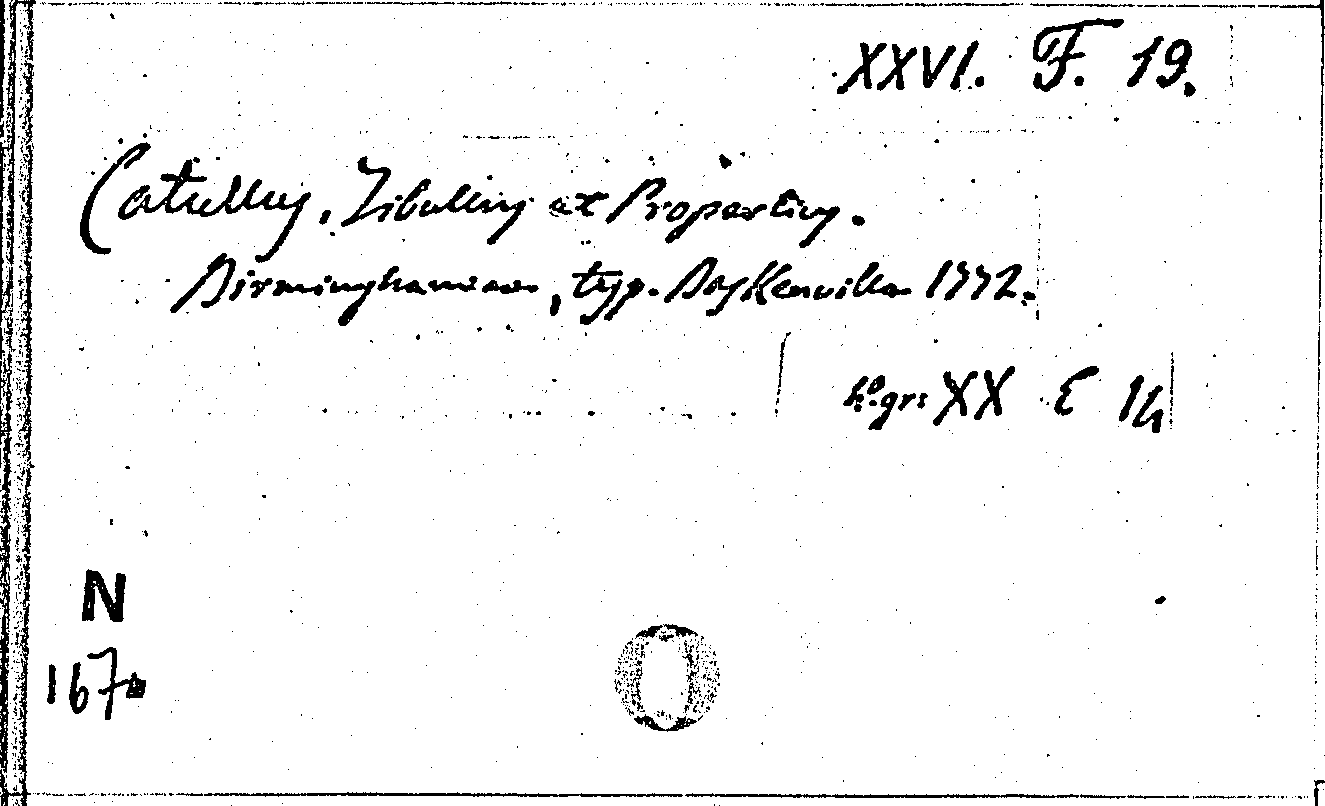 XXVI. F. 19.
Catullus, Tibullus et Propertius.
Birminghamiae, typ. Baskerville 1772.
4o. gr: XX E 14
N
167